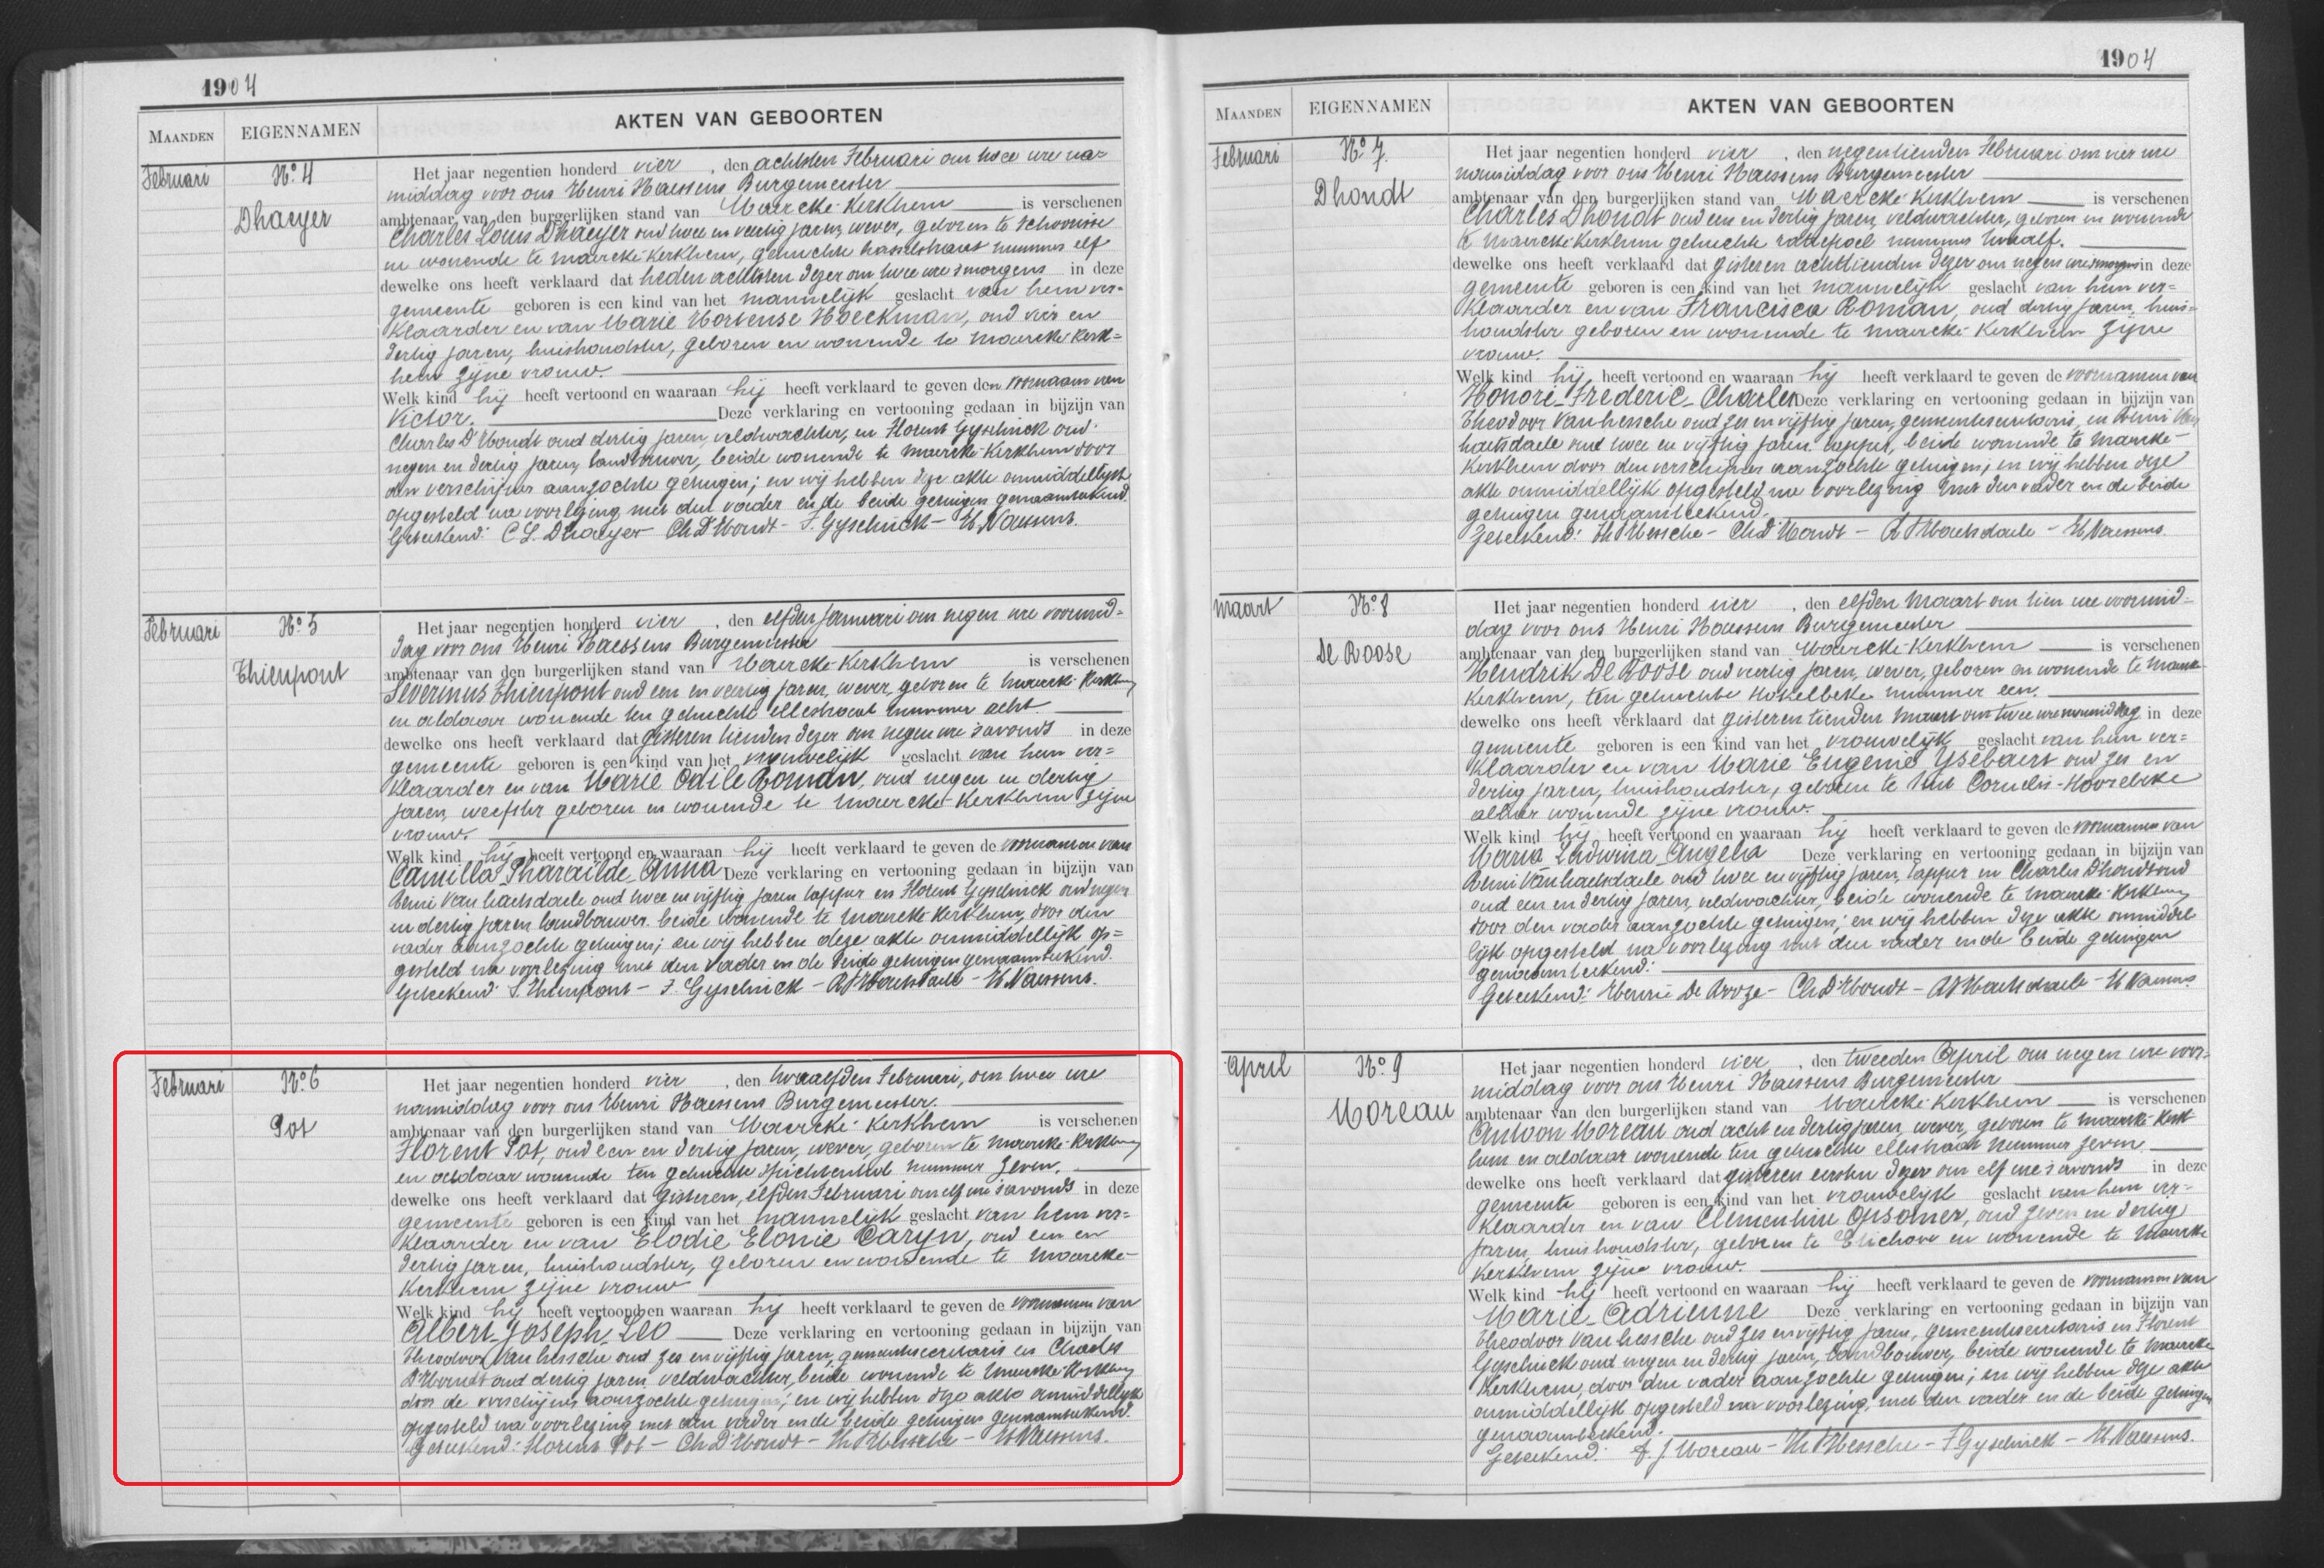 1904
MAANDEN EIGENNAMEN AKTEN VAN GEBOORTEN
Februari
No. 4
Dhaeyer
Het jaar negentien honderd vier, den achtsten Februari om twee ure na=
middag voor ons Henri Naessens Burgemeester
ambtenaar van den burgerlijken stand van Maercke-Kerkhem is verschenen
Charles Louis Dhaeyer oud twee en veertig jaren, wever, geboren te Schoorisse
en wonende te Maercke-Kerkhem, gehuchte hasselstraat nummer elf
dewelke ons heeft verklaard dat heden achtsten dezer om twee ure smorgens in deze
gemeente geboren is een kind van het mannelijk geslacht van hem ver=
klaarder en van Marie Hortense Hoeckman, oud vier en
dertig jaren, huishoudster, geboren en wonende te Maercke Kerk=
hem zijne vrouw.
Welk kind hij heeft vertoond en waaraan hij heeft verklaard te geven den voornaam van
Victor. Deze verklaring en vertooning gedaan in bijzijn van
Charles D'Hondt oud dertig jaren, veldwachter, en Florent Gyselinck oud
negen en dertig jaren, landbouwer, beide wonende te Maercke-Kerkhem door
den verschijner aanzochte getuigen; en wij hebben deze akte onmiddellijk
opgesteld na voorlezing met den vader en de beide getuigen genaamteekend.
Geteekend: C. L. Dhaeyer - Ch D'Hondt - F. Gyselinck - H. Naessens.
Februari
No. 5
Thienpont
Het jaar negentien honderd vier, den elfden Januari om negen ure voormid=
dag voor ons Henri Naessens Burgemeester
ambtenaar van den burgerlijken stand van Maercke-Kerkhem is verschenen
Severinus Thienpont oud een en veertig jaren, wever, geboren te Maercke-Kerkhem
en aldaar wonende ten gehuchte ellestraat nummer acht.
dewelke ons heeft verklaard dat gisteren tienden dezer om negen ure s'avonds in deze
gemeente geboren is een kind van het vrouwelijk geslacht van hem ver=
klaarder en van Marie Odile Roman, oud negen en dertig
jaren, weefster geboren en wonende te Maercke-Kerkhem zijne
vrouw.
Welk kind hij heeft vertoond en waaraan hij heeft verklaard te geven de voornamen van
Camilla Pharaïlde Anna Deze verklaring en vertooning gedaan in bijzijn van
Remi Van haelsdaele oud twee en vijftig jaren lapper en Florent Gyselinck oud negen
en dertig jaren landbouwer beide wonende te Maercke Kerkhem, door den
vader aanzochte getuigen; en wij hebben deze akte onmiddellijk op=
gesteld na voorlezing met den vader en de beide getuigen genaamteekend.
Geteekend S. Thienpont - F. Gyselinck - R VHaelsdaele - H. Naessens.
Februari
No. 6
Pot
Het jaar negentien honderd vier, den twaalfden Februari, om twee ure
namiddag voor ons Henri Naessens Burgemeester.
ambtenaar van den burgerlijken stand van Maercke-Kerkhem is verschenen
Florent Pot, oud een en dertig jaren, wever, geboren te Maercke-Kerkhem
en aldaar wonende ten gehuchte nummer zeven.
dewelke ons heeft verklaard dat gisteren, elfden Februari om elf ure s'avonds in deze
gemeente geboren is een kind van het mannelijk geslacht van hem ver=
klaarder en van Elodie Elonie Caryn, oud een en
dertig jaren, huishoudster, geboren en wonende te Maercke-
Kerkhem zijne vrouw
Welk kind hij heeft vertoond en waaraan hij heeft verklaard te geven de voornamen van
Albert Joseph Leo Deze verklaring en vertooning gedaan in bijzijn van
Theodoor Van hessche oud zes en vijftig jaren, gemeentesecretaris en Charles
D'Hondt oud dertig jaren, veldwachter, beide wonende te Maercke-Kerkhem
door de verschijner aanzochte getuigen; en wij hebben deze akte onmiddellijk
opgesteld na voorlezing met den vader en de beide getuigen genaamteekend.
Geteekend: Florent Pot - Ch D'Hondt - Th VHessche - H Naessens.
1904
MAANDEN EIGENNAMEN AKTEN VAN GEBOORTEN
Februari
No. 7.
Dhondt
Het jaar negentien honderd vier, den negentienden Februari om vier ure
namiddag voor ons Henri Naessens Burgemeester
ambtenaar van den burgerlijken stand van Maercke-Kerkhem is verschenen
Charles Dhondt oud een en dertig jaren, veldwachter, geboren en wonende
te Maercke-Kerkhem gehuchte rattepoel nummer twaalf.
dewelke ons heeft verklaard dat gisteren achttienden dezer om negen ure smorgens in deze
gemeente geboren is een kind van het mannelijk geslacht van hem ver=
klaarder en van Francisca Roman, oud dertig jaren, huis=
houdster geboren en wonende te Maercke-Kerkhem zijne
vrouw.
Welk kind hij heeft vertoond en waaraan hij heeft verklaard te geven de voornamen van
Honoré Frederic Charles Deze verklaring en vertooning gedaan in bijzijn van
Theodoor Van hessche oud zes en vijftig jaren, gemeentesecretaris, en Remi Van
haelsdaele oud twee en vijftig jaren lapper, beide wonende te Maercke-
Kerkhem door den verschijner aanzochte getuigen; en wij hebben deze
akte onmiddellijk opgesteld na voorlezing met den vader en de beide
getuigen genaamteekend.
Geteekend: Th VHessche - Ch D'Hondt - R VHaelsdaele - H. Naessens.
Maart
No. 8
De Roose
Het jaar negentien honderd vier, den elfden Maart om tien ure voormid=
dag voor ons Henri Naessens Burgemeester
ambtenaar van den burgerlijken stand van Maercke-Kerkhem is verschenen
Hendrik De Roose oud veertig jaren, wever, geboren en wonende te Maercke
Kerkhem, ten gehuchte nummer een.
dewelke ons heeft verklaard dat gisteren tienden Maart om twee ure namiddag in deze
gemeente geboren is een kind van het vrouwelijk geslacht van hem ver=
klaarder en van Marie Eugenie Ysebaert oud zes en
dertig jaren, huishoudster, geboren te Sint Cornelis-Hoorebeke
alhier wonende zijne vrouw.
Welk kind hij heeft vertoond en waaraan hij heeft verklaard te geven de voornamen van
Maria Ludwina Angela Deze verklaring en vertooning gedaan in bijzijn van
Remi Van haelsdaele oud twee en vijftig jaren, lapper en Charles Dhondt oud
oud een en dertig jaren, veldwachter, beide wonende te Maercke-Kerkhem
door den vader aanzochte getuigen; en wij hebben deze akte onmiddel
lijk opgesteld na voorlezing met den vader en de beide getuigen
genaamteekend:
Geteekend: Henri De Rooze - Ch D'Hondt - R VHaelsdaele - H Naessens.
April
No. 9
Moreau
Het jaar negentien honderd vier, den tweeden April om negen ure voor=
middag voor ons Henri Naessens Burgemeester
ambtenaar van den burgerlijken stand van Maercke-Kerkhem is verschenen
Antoon Moreau oud acht en dertig jaren, wever, geboren te Maercke-Kerk
hem en aldaar wonende ten gehuchte ellestraat nummer zeven
dewelke ons heeft verklaard dat gisteren eersten dezer om elf ure s'avonds in deze
gemeente geboren is een kind van het vrouwelijk geslacht van hem ver=
klaarder en van Clementine Opsomer, oud zeven en dertig
jaren, huishoudster, geboren te Etichove en wonende te Maercke
Kerkhem zijne vrouw.
Welk kind hij heeft vertoond en waaraan hij heeft verklaard te geven de voornamen van
Marie Adrienne Deze verklaring en vertooning gedaan in bijzijn van
Theodoor Van hessche oud zes en vijftig jaren, gemeentesecretaris en Florent
Gyselinck oud negen en dertig jaren, landbouwer, beide wonende te Maercke
Kerkhem, door den vader aanzochte getuigen; en wij hebben deze akte
onmiddellijk opgesteld na voorlezing, met den vader en de beide getuigen
genaamteekend.
Geteekend: A. J. Moreau - Th VHessche - F Gyselinck - H. Naessens.